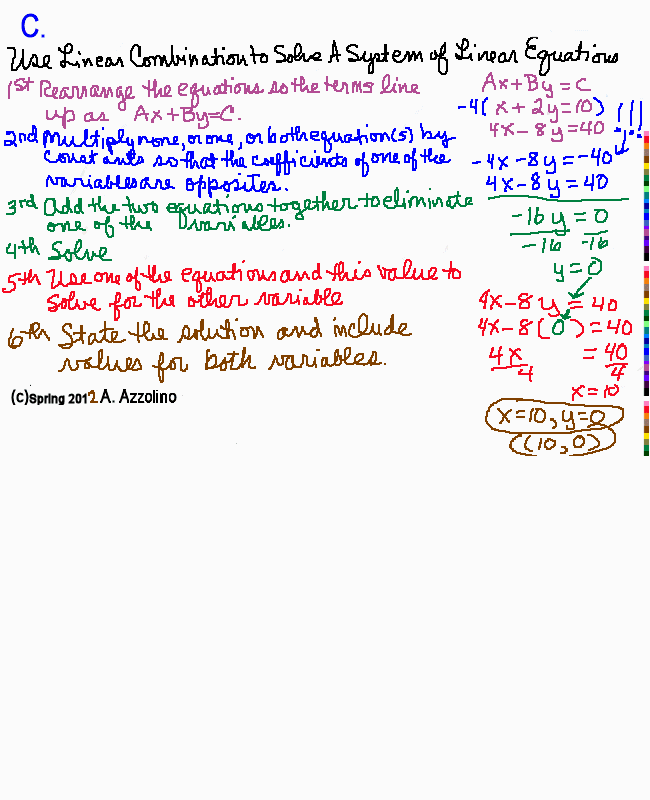 C.
Use Linear Combination to Solve A System of Linear Equations
1st Rearrange the equations so the terms line
up as Ax+By=C.
2nd Multiply none, or one, or both equation(s) by
constants so that the coefficients of one of the
variables are opposites.
3rd Add the two equations together to eliminate
one of the variables.
4th Solve
5th Use one of the equations and this value to
solve for the other variable
6th State the solution and include
values for both variables.
(c)Spring 2012 A. Azzolino
Ax+By=C
-4(x+2y=10)
4x-8y=40
-4x-8y=-40
4x-8y=40
-16y=0
-16 -16
y=0
4x-8y=40
4x-8(0)=40
4x =40
4 4
x=10
x=10, y=0
(10,0)